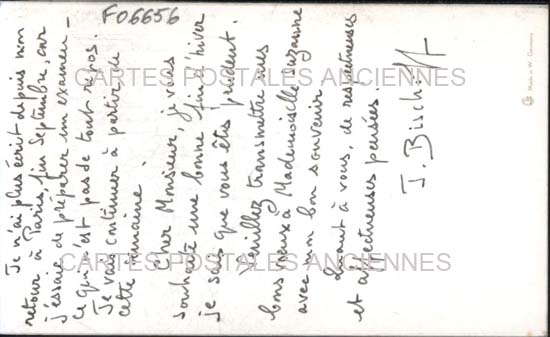 F06656
Je n'ai plus écrit depuis mon
retour à Paris, fin Septembre, car
j'essaie de préparer un examen -
ce qui n'est pas de tout repos.
Je vais continuer à partir de
cette semaine.
Cher Monsieur, je vous
souhaite une bonne fin d'hiver
je sais que vous êtes prudent.
Veuillez transmettre mes
bons vœux à Mademoiselle Suzanne
avec mon bon souvenir
Quant à vous, de respectueuses
et affectueuses pensées.
J. Bischoff
CARTES POSTALES ANCIENNES
CARTES POSTALES ANCIENNES
Made in W. Germany